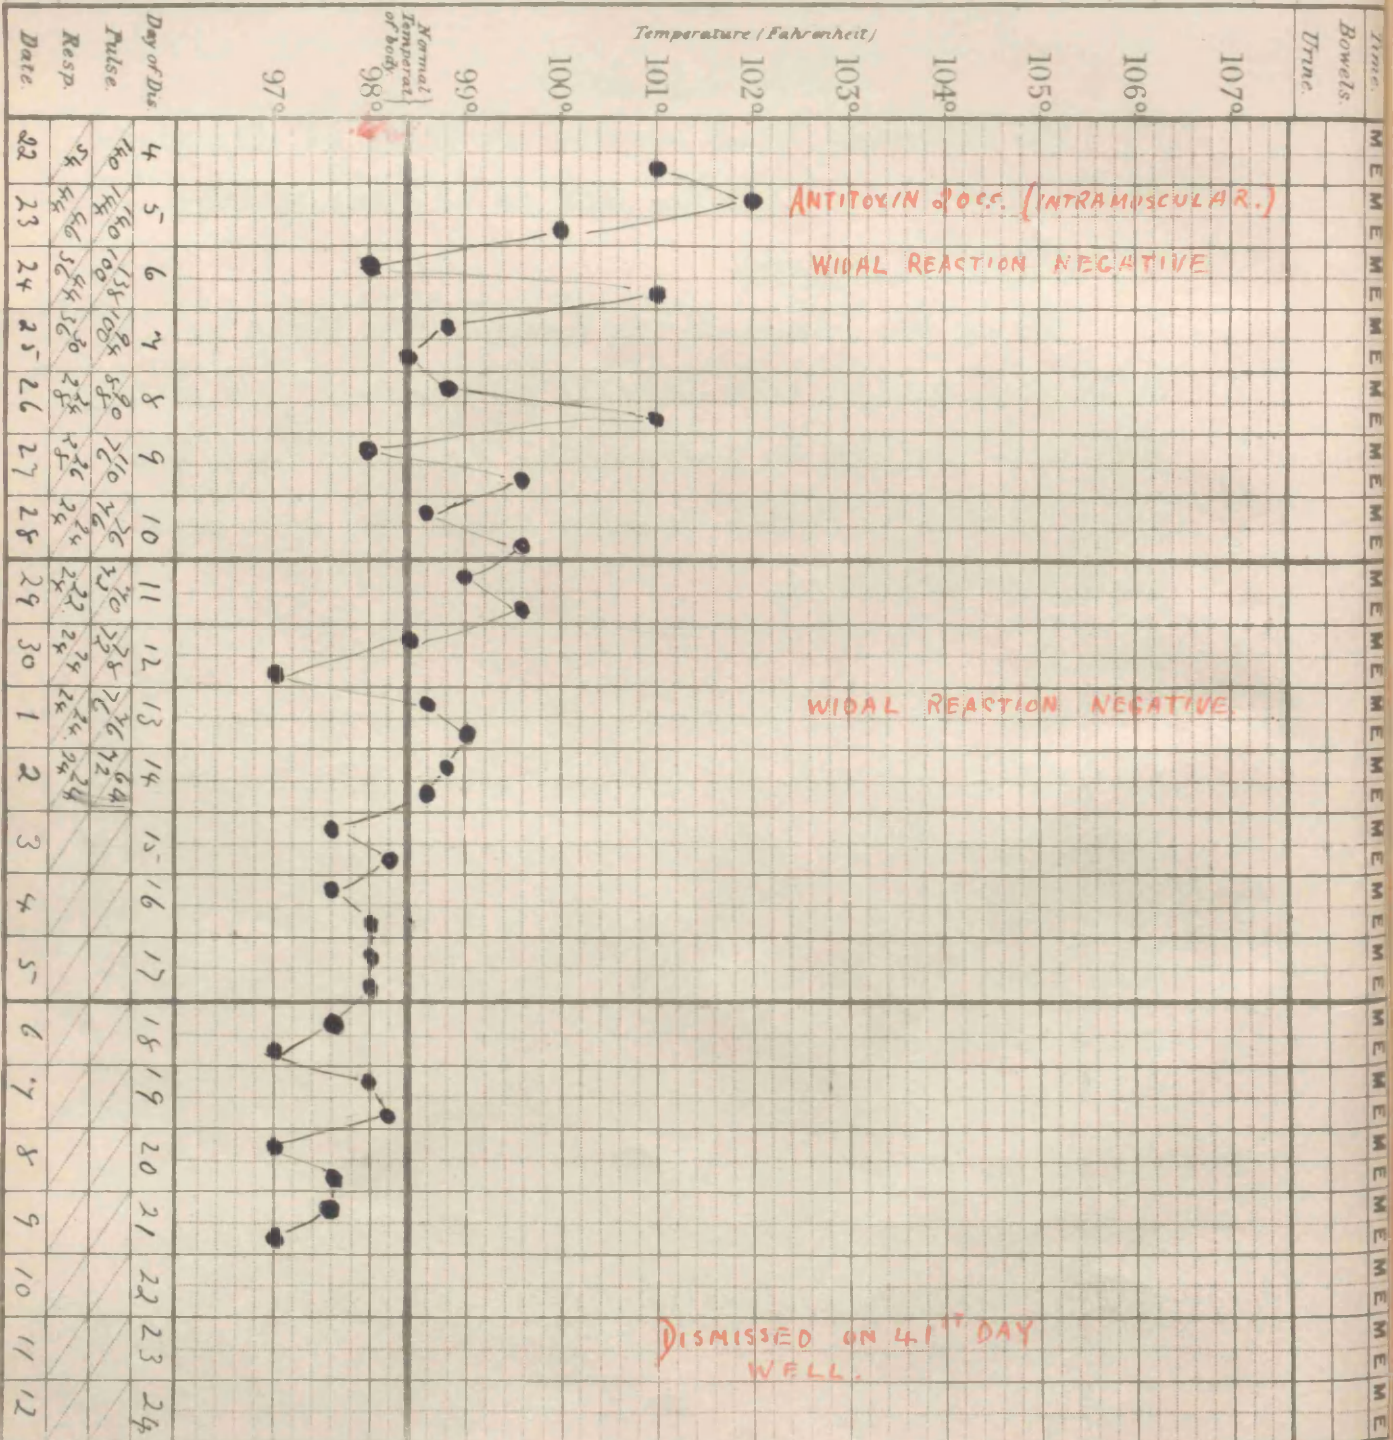 Time.
M E M E M E M E M E M E M E M E M E M E M E M E M E M E M E M E M E M E M E M E M E
Bowels.
Urine.
Temperature (Fahrenheit)
107°
106°
105°
104°
103°
102°
101°
100°
99°
Normal Temperat of body.
98°
97°
ANTITOXIN 20 c.c. (INTRAMUSCULAR.)
WIDAL REACTION NEGATIVE
WIDAL REACTION NEGATIVE.
DISMISSED ON 41ST DAY
WELL.
Day of Dis 4 5 6 7 8 9 10 11 12 13 14 15 16 17 18 19 20 21 22 23 24
Pulse. 140 144 140 100 138 100 94 88 90 76 110 76 76 70 72 78 76 76 72 64
Resp. 54 44 46 56 44 56 50 28 24 28 26 24 24 24 22 24 24 24 24 24 24
Date. 22 23 24 25 26 27 28 29 30 1 2 3 4 5 6 7 8 9 10 11 12